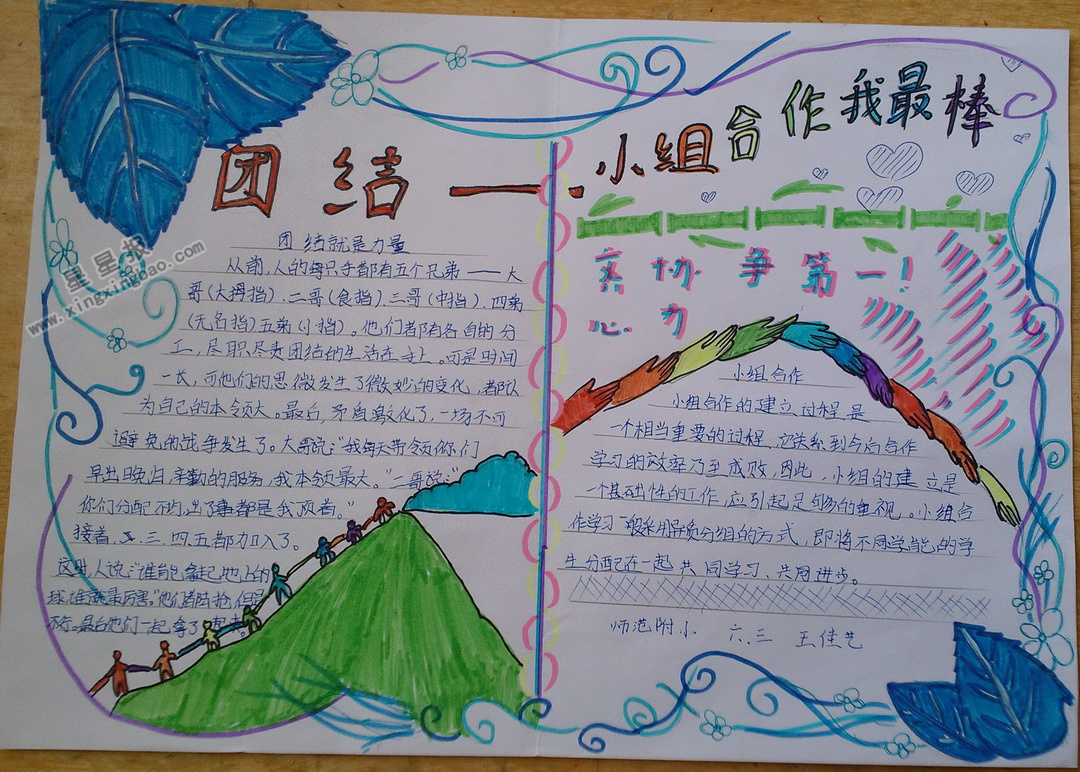 团结——.小组合作我最棒
团结就是力量
从前,人的每只手都有五个兄弟——大
哥(大拇指)、二哥(食指)、三哥(中指)、四弟
(无名指)五弟(小指)。他们都有各自的分
工,尽职尽责团结的生活在手上。可是时间
一长,可他们的思微发生了微妙的变化,都认
为自己的本领大。最后,矛盾激化了,一场不可
避免的战争发生了。大哥说:“我每天带领你们
早出晚归,辛勤的服务,我本领最大。”二哥说:“
你们分配不均,出了事都是我顶着。”
接着,三、四、五都加入了。
这时人说:“谁能拿起地上的
球谁就最厉害。”他们都
最后他们一起拿了起来。
齐心协力争第一!
小组合作
小组合作的建立过程是
一个相当重要的过程,它关系到今后合作
学习的效率乃至成败,因此,小组的建立是
一个基础性的工作,应引起足够的重视。小组合
作学习一般采用异质分组的方式,即将不同学能的学
生分配在一起共同学习、共同进步。
师范附小 六.三 王佳艺
星星报
www.xingxingbao.com